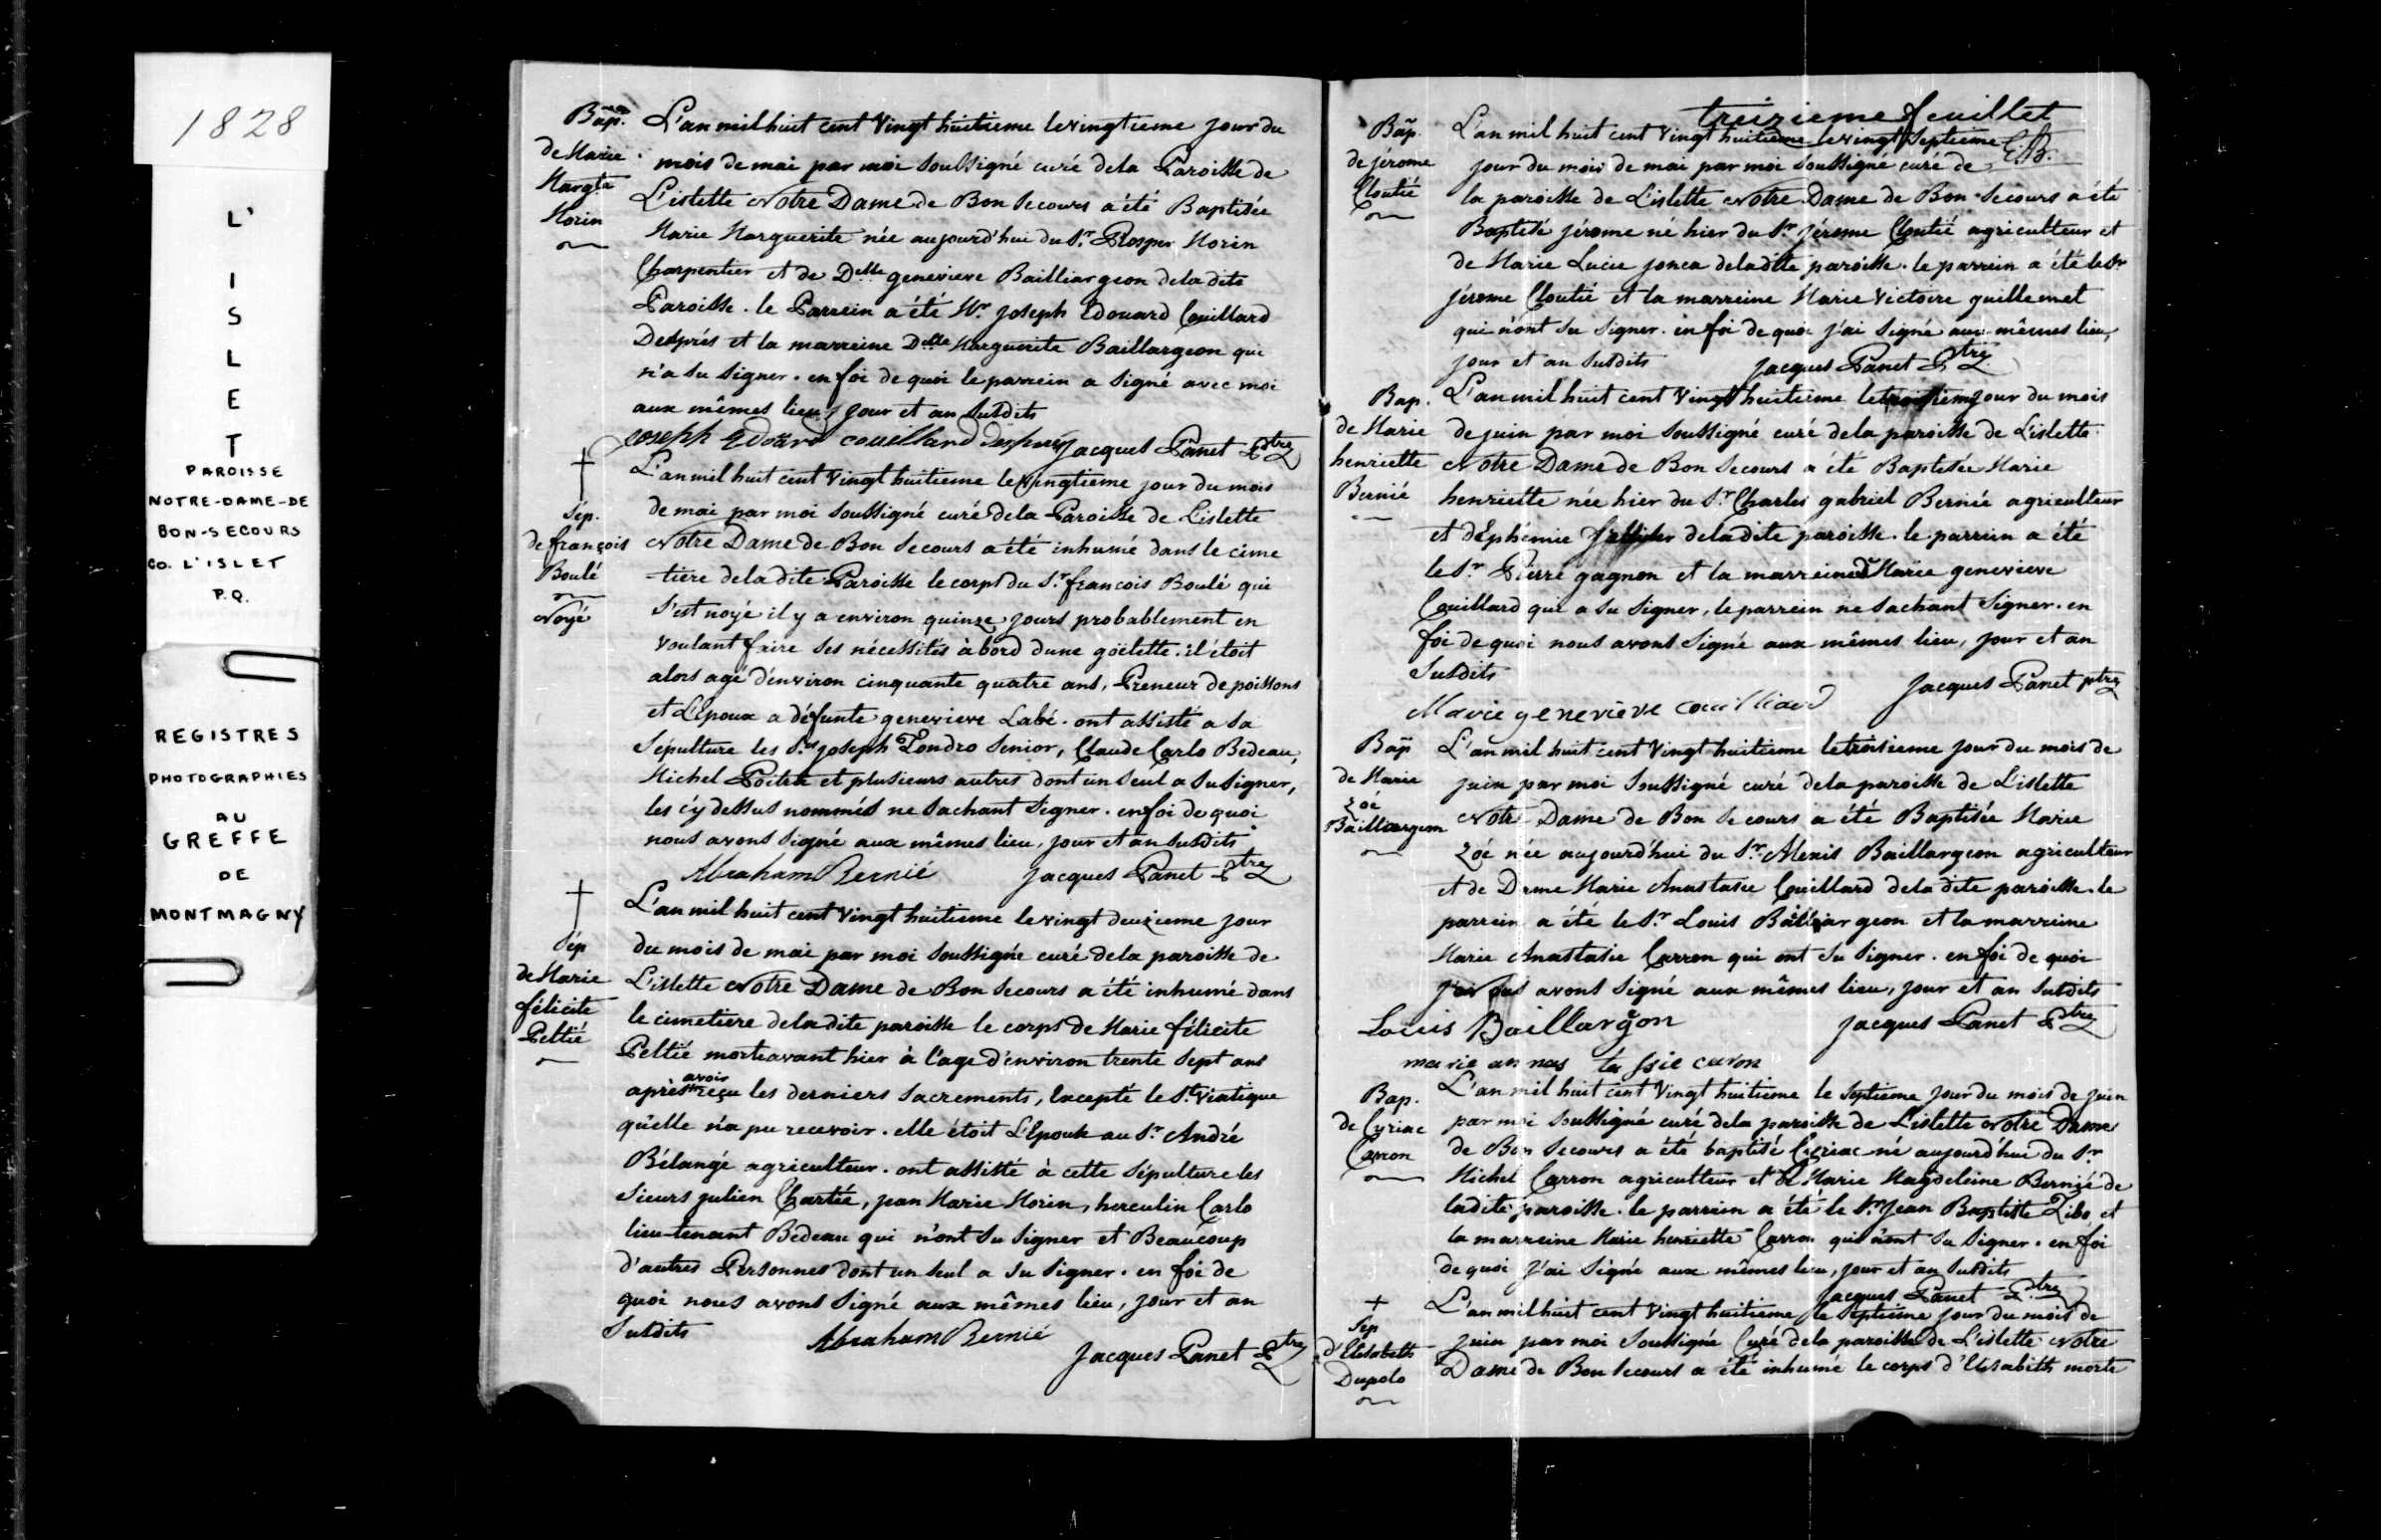 1828
L'
I
S
L
E
T
PAROISSE
NOTRE-DAME-DE
BON-SECOURS
CO. L'ISLET
P.Q.
REGISTRES
PHOTOGRAPHIES
AU
GREFFE
DE
MONTMAGNY
Bap.
de Marie
Margte
Morin
L'an mil huit cent vingt huitieme le vingtieme jour du
mois de mai par moi soussigné curé de la Paroisse de
L'islette Notre Dame de Bon Secours a été Baptisée
Marie Marguerite née aujourd'hui du Sr. Prosper Morin
Charpentier et de Delle genevieve Bailliargeon de la dite
Paroisse. le Parrein a été Mr. joseph Edouard Couillard
Després et la marreine Delle Marguerite Baillargeon qui
n'a su signer. en foi de quoi le parrein a signé avec moi
aux mêmes lieu, jour et an susdits
joseph Edouard couillard després jacques Panet Ptre
†
Sép.
de françois
Boulé
Noyé
L'an mil huit cent vingt huitieme le vingtieme jour du mois
de mai par moi soussigné curé de la Paroisse de Lislette
Notre Dame de Bon Secours a été inhumé dans le cime
tiere de la dite Paroisse le corps du Sr. francois Boulé qui
s'est noyé il y a environ quinze jours probablement en
voulant faire ses nécessités à bord dune goëlette. il étoit
alors agé d'environ cinquante quatre ans, Preneur de poissons
et L'Epoux a défunte genevieve Labé. ont assisté a sa
Sépulture les Srs joseph Tondro Senior, Claude Carlo Bedeau,
Michel Poitra et plusieurs autres dont un seul a su signer,
les cy dessus nommés ne sachant signer. en foi de quoi
nous avons signé aux mêmes lieu, jour et an susdits
Abraham Bernié jacques Panet Ptre
†
Sép
de Marie
félicite
Peltié
L'an mil huit cent vingt huitieme le vingt deuxieme jour
du mois de mai par moi soussigné curé de la paroisse de
L'islette Notre Dame de Bon Secours a été inhumé dans
le cimetiere de la dite paroisse le corps de Marie félicite
Peltié morte avant hier à l'age d'environ trente sept ans
après avoir reçu les derniers sacrements, excepté le St. Viatique
qu'elle n'a pu recevoir. elle étoit L'Epouse au Sr. André
Bélangé agriculteur. ont assisté à cette sépulture les
sieurs julien Chartié, jean Marie Morin, herculin Carlo
lieu-tenant Bedeau qui n'ont su signer et Beaucoup
d'autres Personnes dont un seul a su signer. en foi de
quoi nous avons signé aux mêmes lieu, jour et an
susdits
Abraham Bernié
jacques Panet Ptre
treizieme feuillet
E.B.
Bap
de jérome
Cloutié
L'an mil huit cent vingt huitieme le vingt septieme
jour du mois de mai par moi soussigné curé de
la paroisse de L'islette Notre Dame de Bon Secours a été
Baptisé jérome né hier du Sr jérome Cloutié agriculteur et
de Marie Lucie jonca de la dite paroisse. le parrein a été le Sr
jérome Cloutié et la marreine Marie Victoire guillemet
qui n'ont su signer. en foi de quoi j'ai signé aux mêmes lieu,
jour et an susdits jacques Panet Ptre
Bap.
de Marie
henriette
Bernié
L'an mil huit cent vingt huitieme le jour du mois
de juin par moi soussigné curé de la paroisse de Lislette
Notre Dame de Bon Secours a été Baptisée Marie
henriette née hier du Sr. Charles gabriel Bernié agriculteur
et d'Ephémie de la dite paroisse. le parrein a été
le Sr Pierre gagnon et la marreine Marie genevieve
Couillard qui a su signer, le parrein ne sachant signer. en
foi de quoi nous avons signé aux mêmes lieu, jour et an
susdits
jacques Panet ptre
Marie genevieve couilliard
Bap
de Marie
zoé
Baillargeon
L'an mil huit cent vingt huitieme le troisieme jour du mois de
juin par moi soussigné curé de la paroisse de L'islette
Notre Dame de Bon Secours a été Baptisée Marie
zoé née aujourd'hui du Sr. Alexis Baillargeon agriculteur
et de Dame Marie Anastasie Couillard de la dite paroisse. le
parrein a été le Sr Louis Bailliargeon et la marreine
Marie Anastasie Carron qui ont su signer. en foi de quoi
nous avons signé aux mêmes lieu, jour et an susdits
Louis Baillargon jacques Panet Ptre
marie an nas ta ssie caron
Bap.
de Cyriac
Carron
L'an mil huit cent vingt huitieme le septieme jour du mois de juin
par moi soussigné curé de la paroisse de L'islette Notre Dame
de Bon Secours a été baptisé Cyriac né aujourd'hui du Sr
Michel Carron agriculteur et de Marie Magdeleine Bernié de
ladite paroisse. le parrein a été le Sr. Jean Baptiste Zibo et
la marreine Marie henriette Carron qui n'ont su signer. en foi
de quoi j'ai signé aux mêmes lieu, jour et an susdits
jacques Panet Ptre
†
Sep
d'Elisabeth
Dupolo
L'an mil huit cent vingt huitieme le septieme jour du mois de
juin par moi soussigné Curé de la paroisse de L'islette Notre
Dame de Bon Secours a été inhumé le corps d'Elisabeth morte